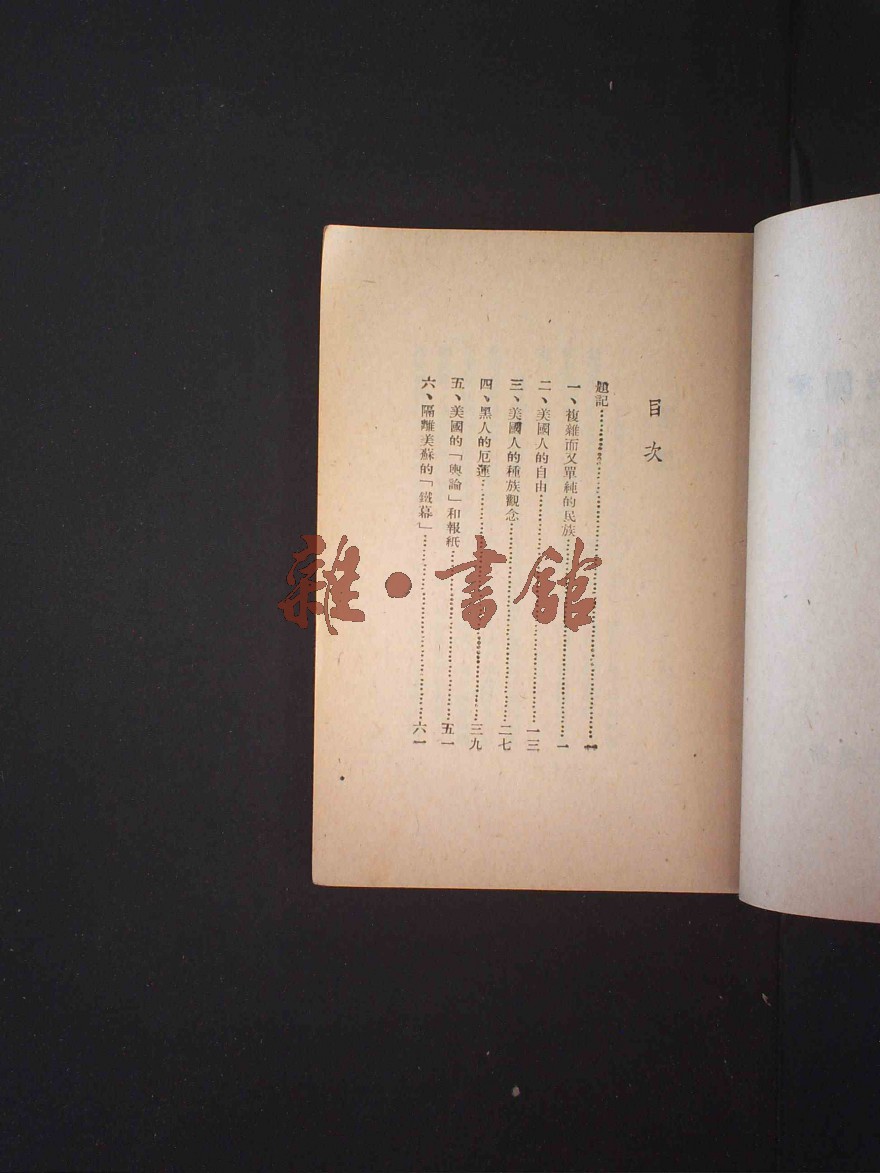 目次
題記
一、複雜而又單純的民族……一
二、美國人的自由……一三
三、美國人的種族觀念……二七
四、黑人的厄運……三九
五、美國的「輿論」和報紙……五一
六、隔離美蘇的「鐵幕」……六一
雜·書館